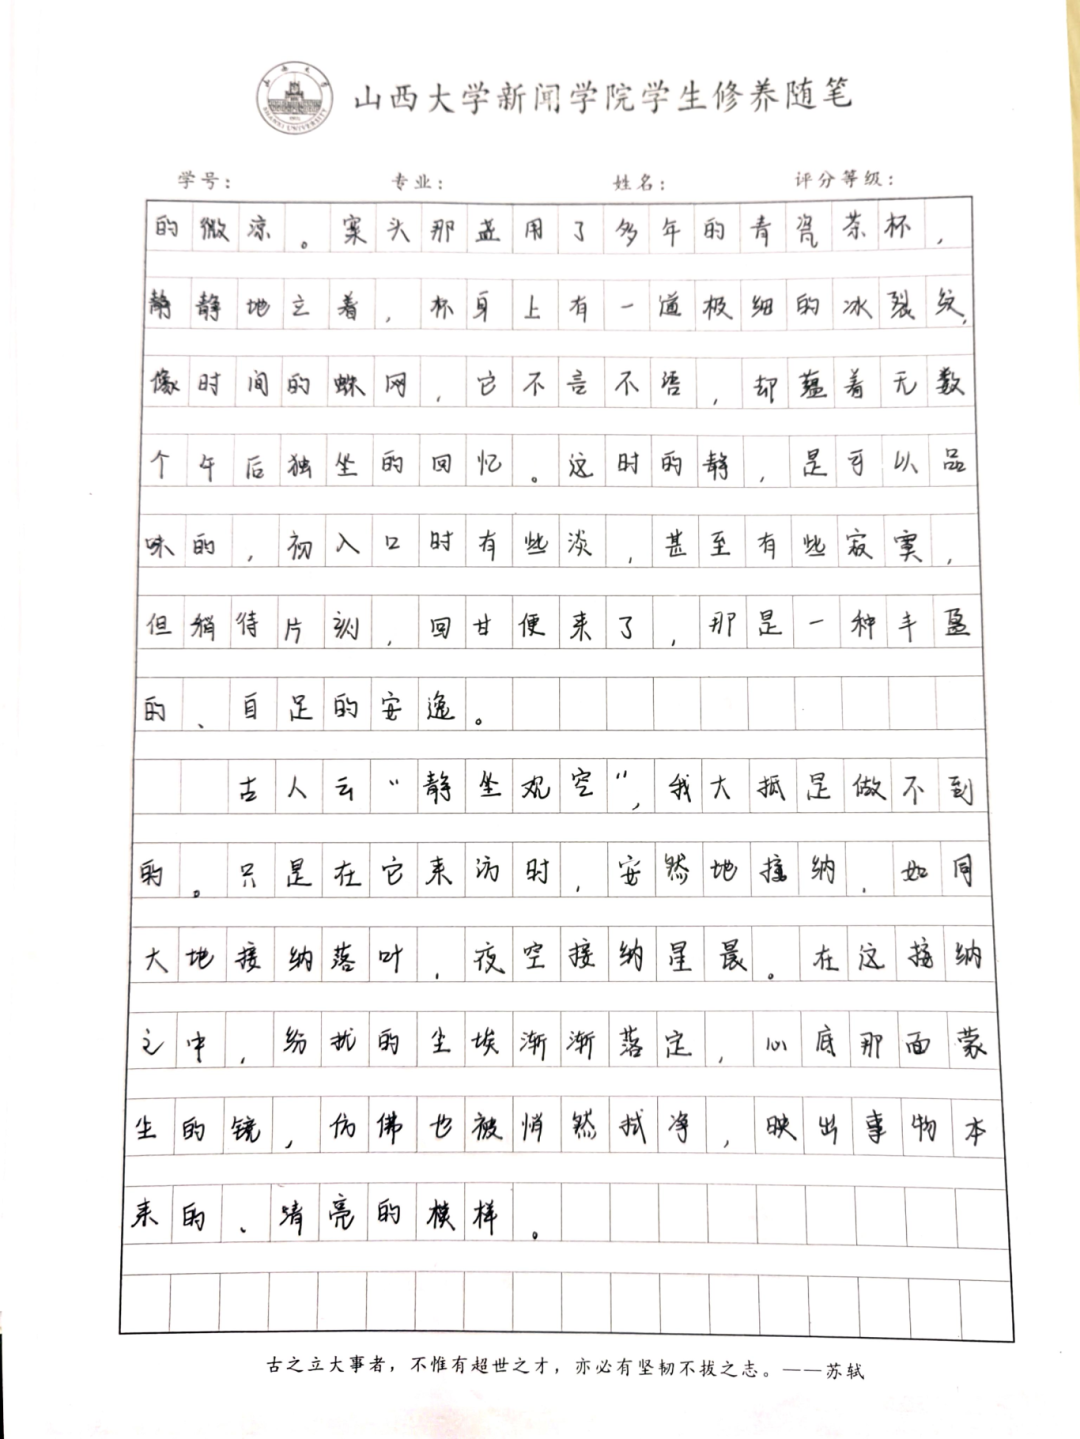 山西大学
SHANXI UNIVERSITY
山西大学新闻学院学生修养随笔
学号： 专业： 姓名： 评分等级：
的微凉。案头那盏用了多年的青瓷茶杯，
静静地立着，杯身上有一道极细的冰裂纹，
像时间的蛛网，它不言不语，却蕴着无数
个午后独坐的回忆。这时的静，是可以品
味的，初入口时有些淡，甚至有些寂寞，
但稍待片刻，回甘便来了，那是一种丰盈
的、自足的安逸。
古人云“静坐观空”，我大抵是做不到
的。只是在它来访时，安然地接纳，如同
大地接纳落叶，夜空接纳星晨。在这接纳
之中，纷扰的尘埃渐渐落定，心底那面蒙
生的镜，仿佛也被悄然拭净，映出事物本
来的、清亮的模样。
古之立大事者，不惟有超世之才，亦必有坚韧不拔之志。——苏轼